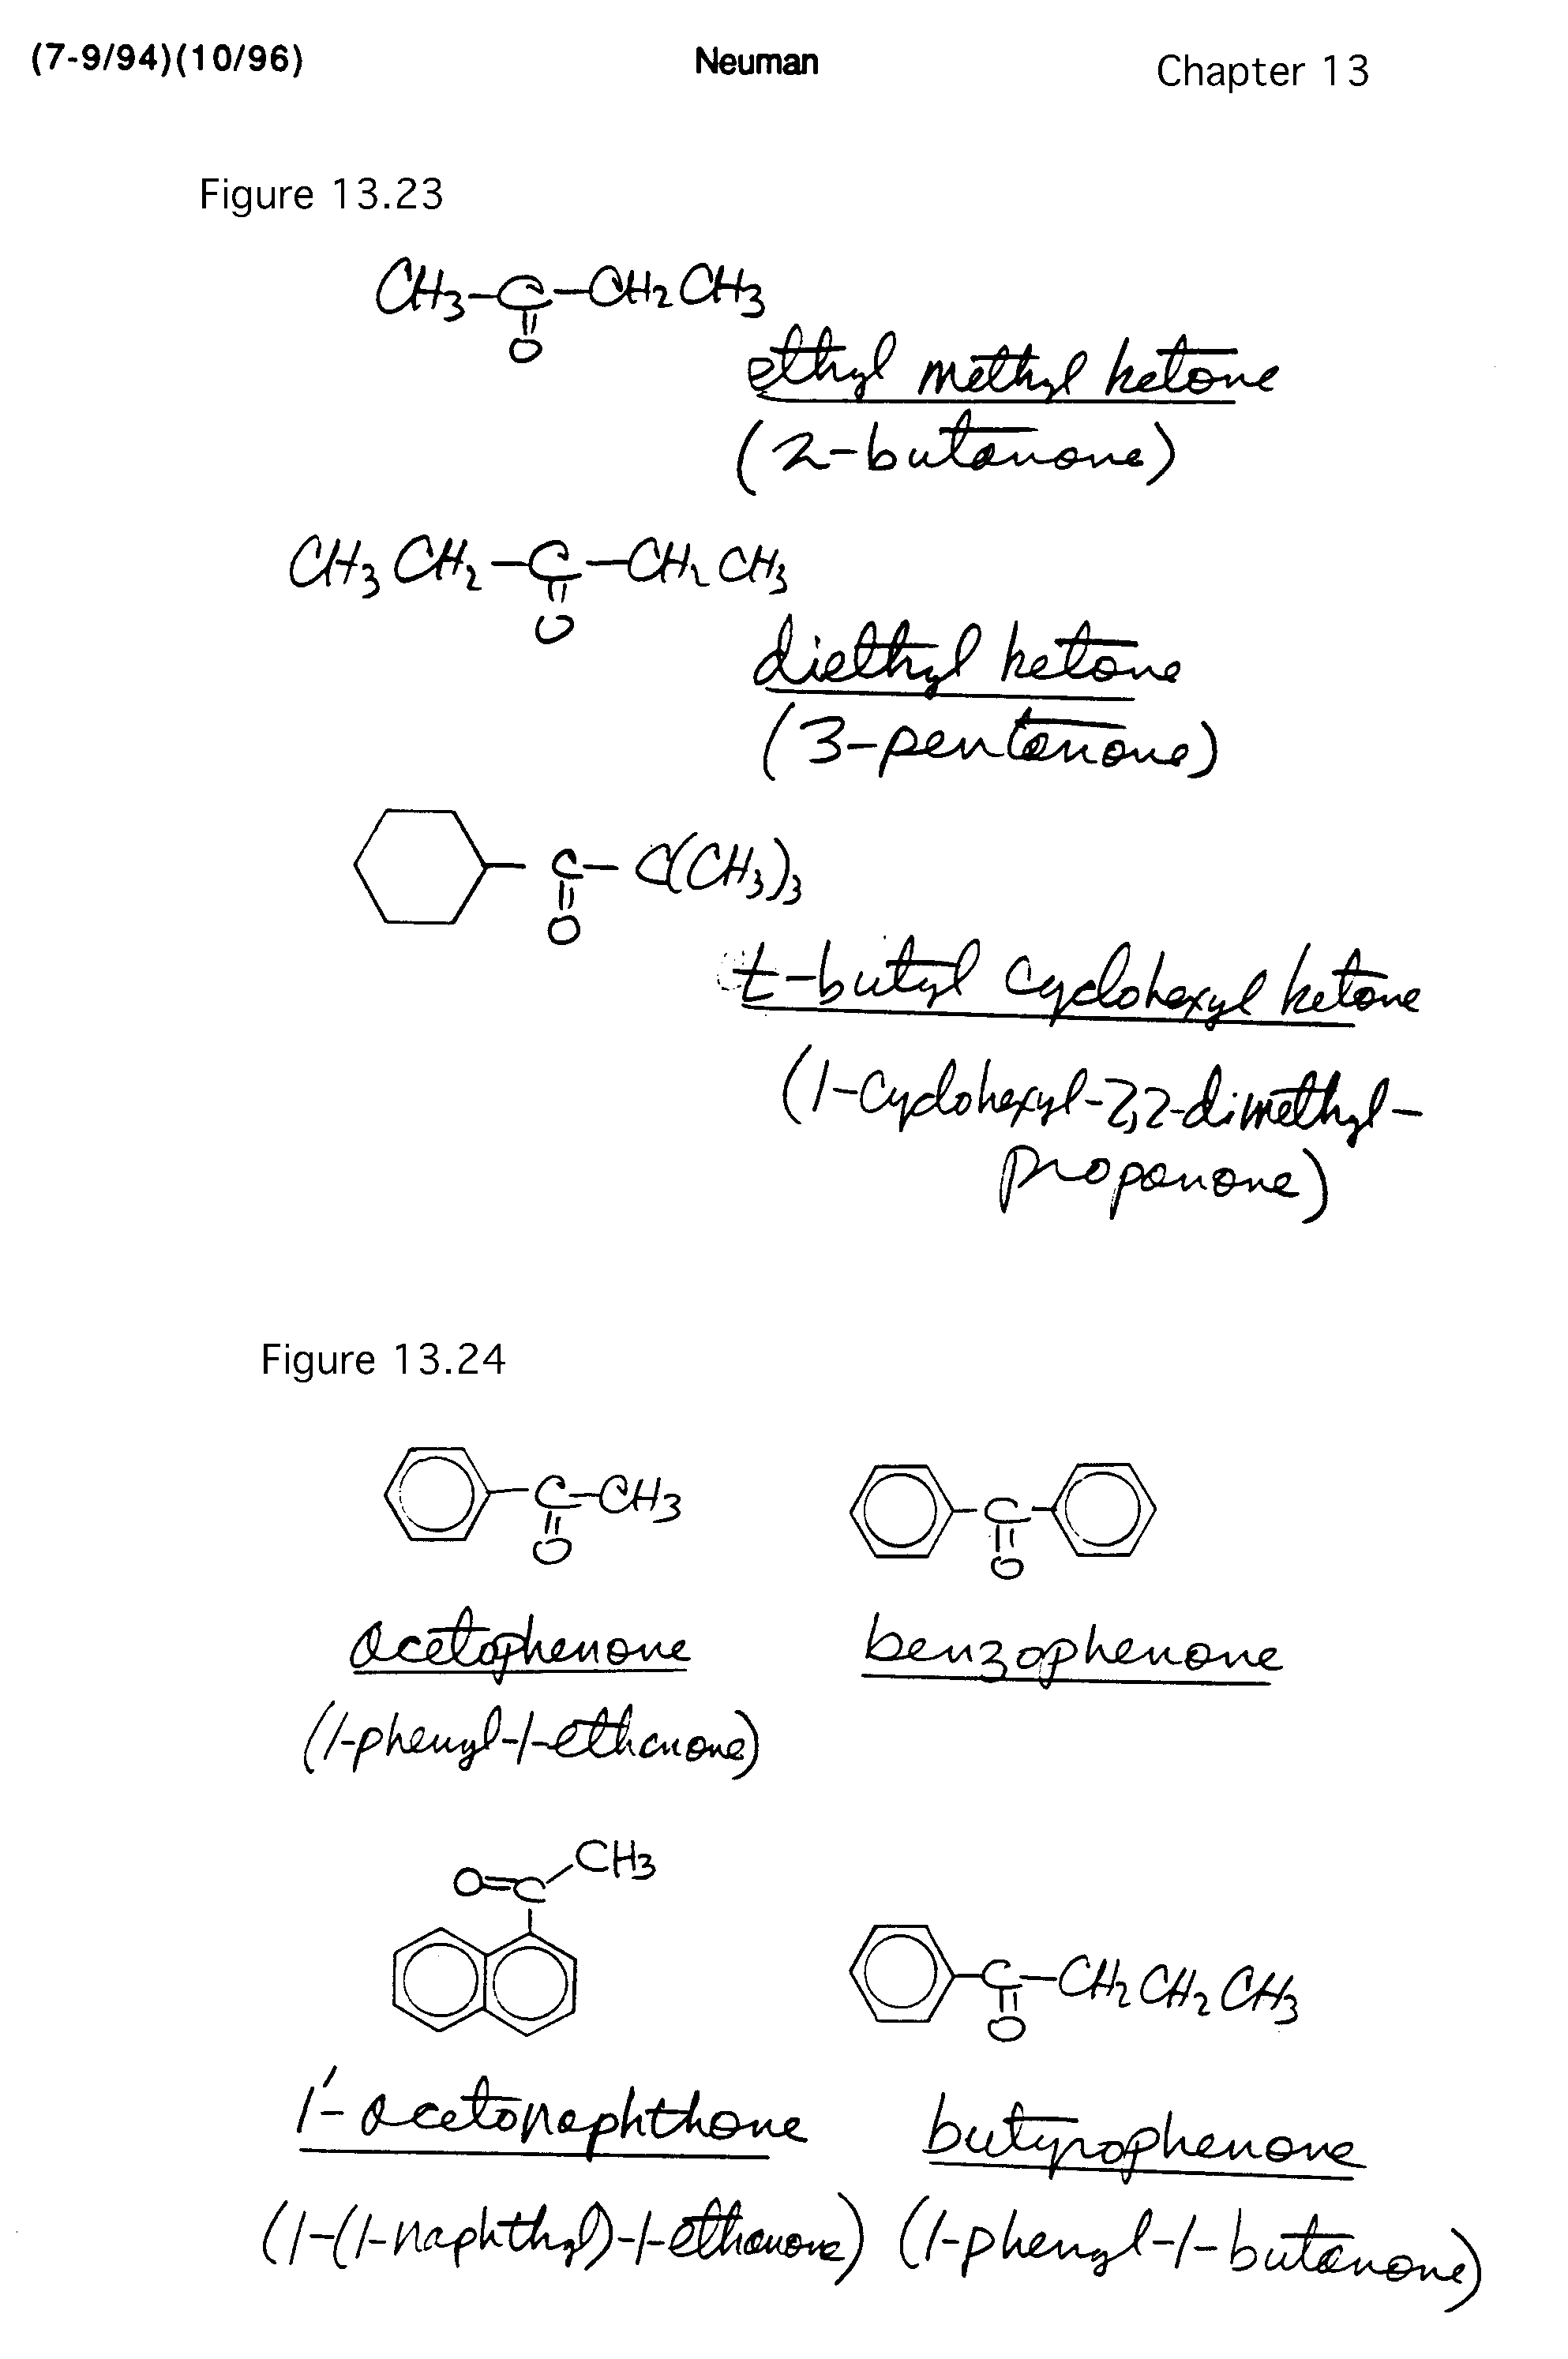 (7-9/94)(10/96) Neuman Chapter 13
Figure 13.23
CH3-C-CH2CH3
O
ethyl methyl ketone
(2-butanone)
CH3CH2-C-CH2CH3
O
diethyl ketone
(3-pentanone)
C-C(CH3)3
O
t-butyl cyclohexyl ketone
(1-cyclohexyl-2,2-dimethyl-
propanone)
Figure 13.24
C-CH3 C
O O
acetophenone benzophenone
(1-phenyl-1-ethanone)
CH3
O=C
C-CH2CH2CH3
O
1'-acetonaphthone butyrophenone
(1-(1-naphthyl)-1-ethanone) (1-phenyl-1-butanone)